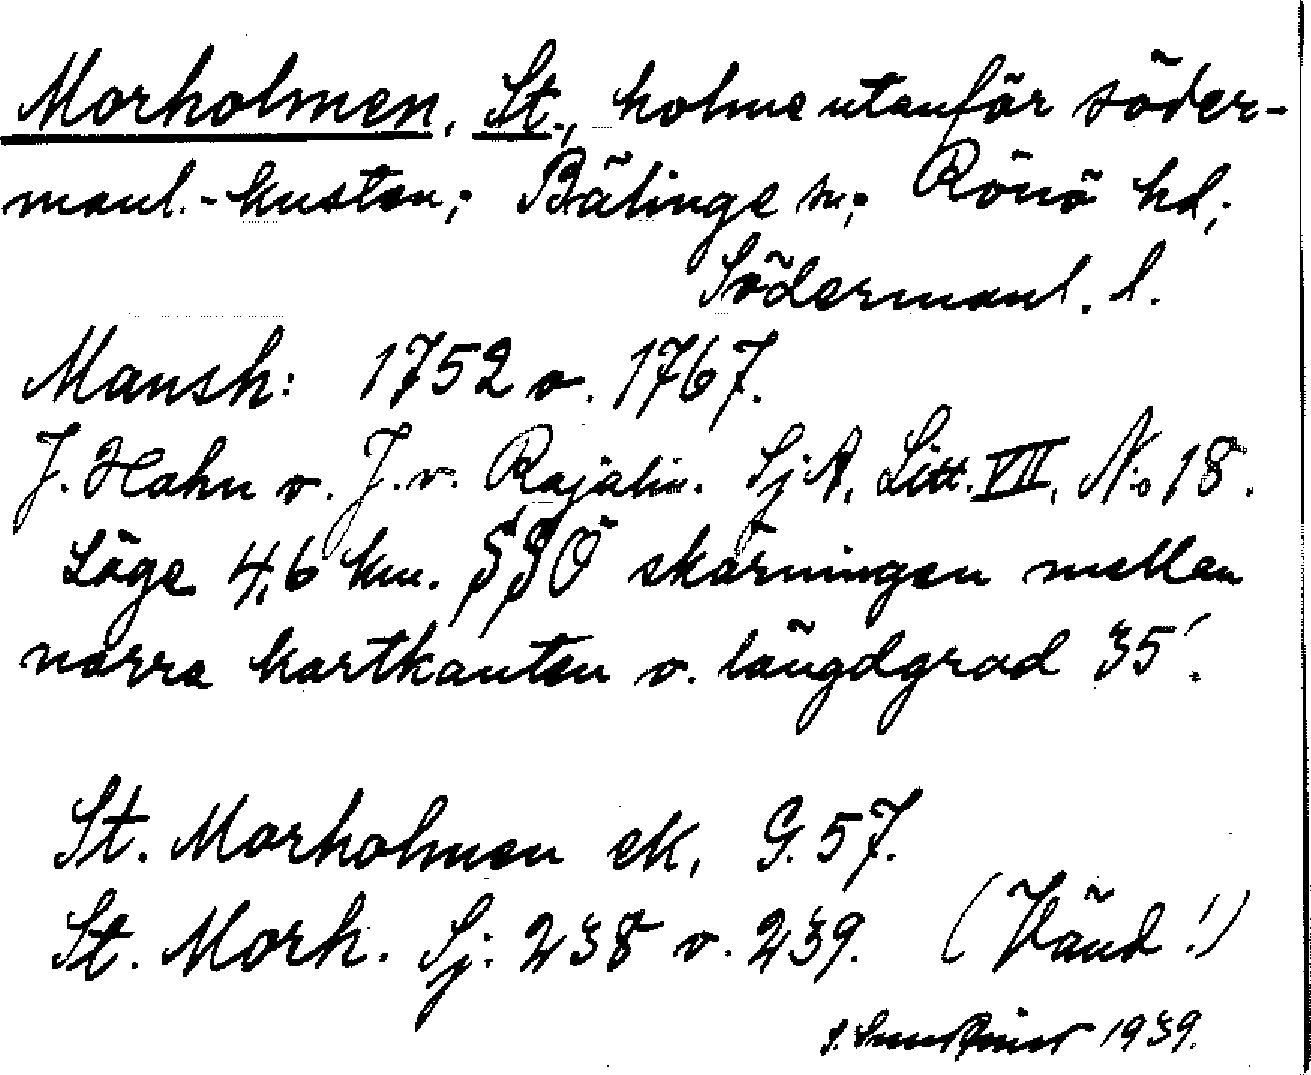 Morholmen, St., holme utanför söder-
manl.-kusten; Bälinge sn; Rönö hd;
Södermanl. l.
Mansk: 1752 o. 1767.
J. Hahn o. J. v. Rajalin. Sj.A. Litt. VII, No 18.
Läge 4,6 km. SSO skärningen mellan
norra kartkanten o. längdgrad 35'.
St. Morholmen ek. G. 57.
St. Morh. Sj. 238 o. 239. (Vänd!)
1939.